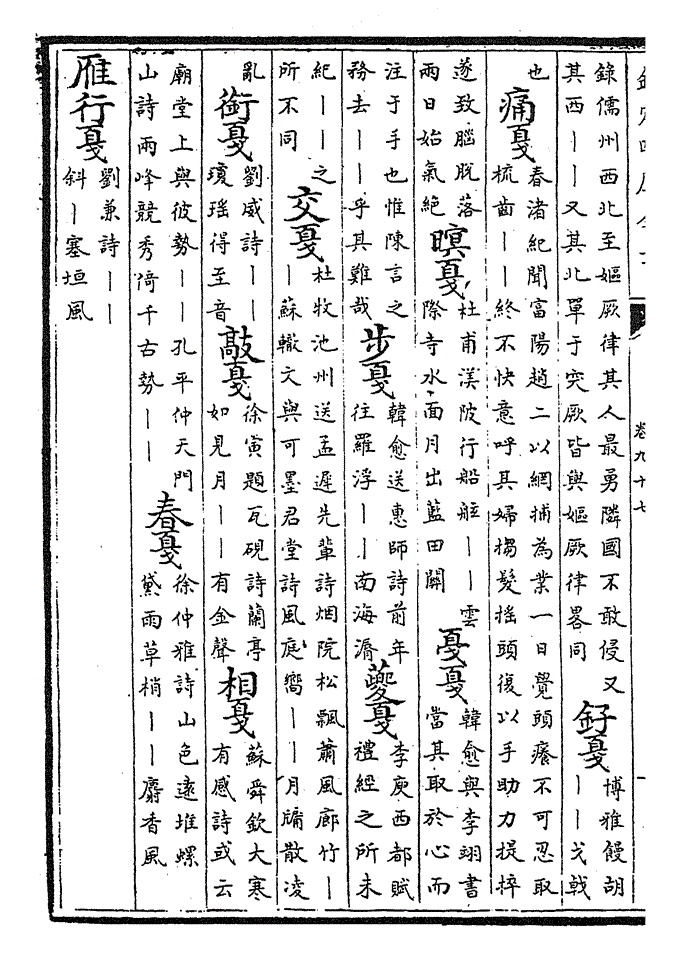 卷九十七
錄儒州西北至嫗厥律其人最勇隣國不敢侵又
其西丨丨又其北單于突厥皆與嫗厥律畧同
釨戛
博雅鏝胡
丨丨戈戟
也
痛戛
春渚紀聞富陽趙二以網捕為業一日覺頭癢不可忍取
梳齒丨丨終不快意呼其婦搊髮搖頭復以手助力提捽
遂致腦脫落
兩日始氣絕
暝戛
杜甫渼陂行船舷丨丨雲
際寺水面月出藍田關
戛戛
韓愈與李翊書
當其取於心而
注于手也惟陳言之
務去丨丨乎其難哉
步戛
韓愈送惠師詩前年
往羅浮丨丨南海漘
夔戛
李庾西都賦
禮經之所未
紀丨丨之
所不同
交戛
杜牧池州送孟遲先輩詩烟院松飄蕭風廊竹丨
丨蘇轍文與可墨君堂詩風庭嚮丨丨月牖散凌
亂
銜戛
劉威詩丨丨
瓊瑶得至音
敲戛
徐寅題瓦硯詩蘭亭
如見月丨丨有金聲
相戛
蘇舜欽大寒
有感詩或云
廟堂上與彼勢丨丨孔平仲天門
山詩兩峰競秀倚千古勢丨丨
春戛
徐仲雅詩山色遠堆螺
黛雨草梢丨丨麝香風
雁行戛
劉兼詩丨丨
斜丨塞垣風